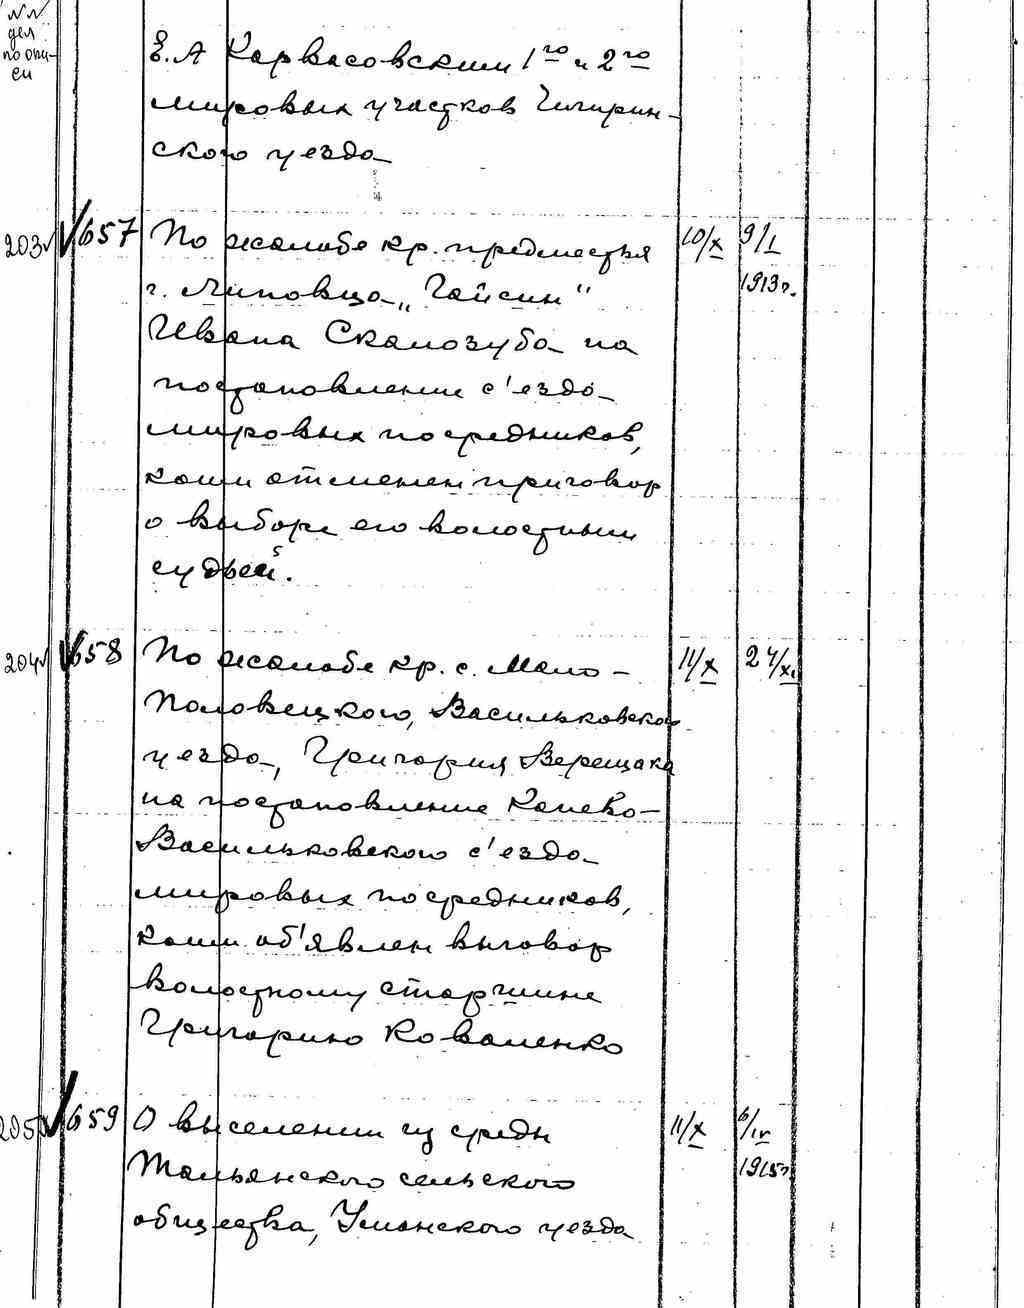 NN
дел
по опи-
си
Е.А Карвасовским 1го и 2го
мировых участков Чигирин-
ского уезда
203 657 По жалобе кр. предместья 10/X 9/I
г. Липовца „Гайсин" 1913г.
Ивана Скалозуба на
постановление с'езда
мировых посредников,
коим отменен приговор
о выборе его волостным
судьей.
204 658 По жалобе кр. с. Мало- 11/X 24/XI
Половецкого, Васильковского
уезда, Григория Верещака
на постановление Киево-
Васильковского с'езда
мировых посредников,
коим об'явлен выговор
волостному старшине
Григорию Коваленко
205 659 О выселении из среды 11/X 6/IV
Тальянского сельского 1915г
общества, Уманского уезда